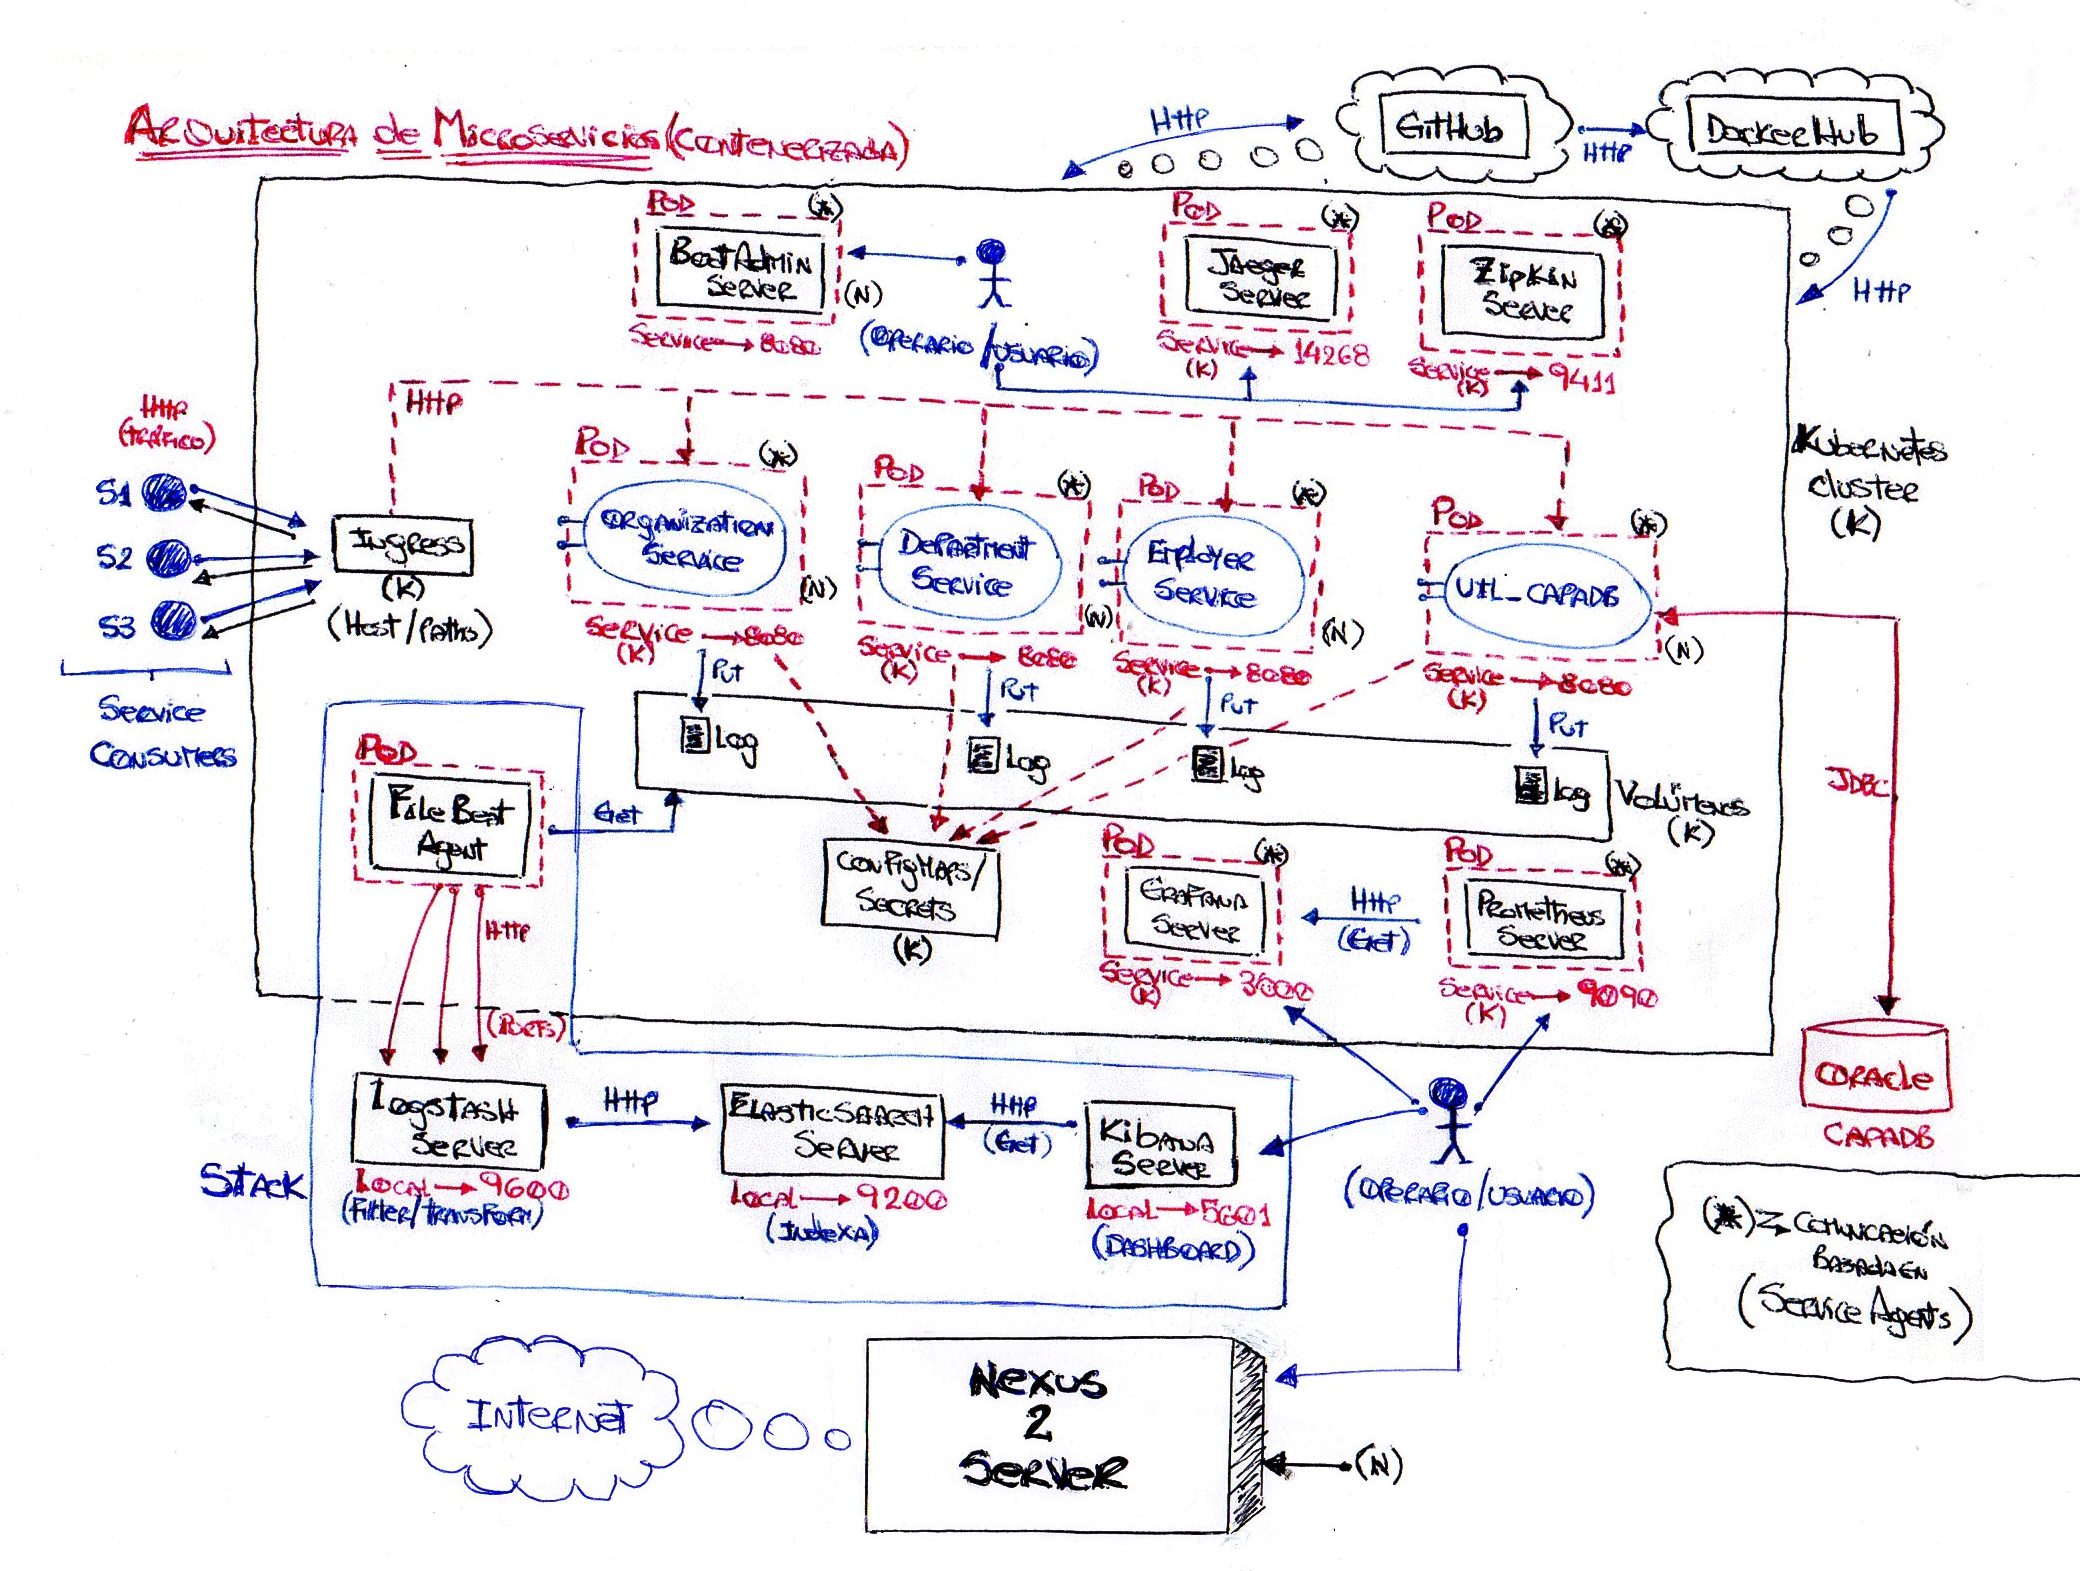 Arquitectura de Microservicios (contenerizada)
HTTP
GitHub
HTTP
DockerHub
HTTP
POD
(*)
BootAdmin
Server
(N)
Service → 8080
(Operario/usuario)
POD
(*)
Jaeger
Server
Service → 14268
(K)
POD
(*)
Zipkin
Server
Service → 9411
(K)
Kubernetes
cluster
(K)
HTTP
(tráfico)
S1
S2
S3
Service
Consumers
HTTP
Ingress
(K)
(Host/Paths)
POD
(*)
Organization
Service
(N)
Service → 8080
(K)
Put
POD
(*)
Department
Service
(N)
Service → 8080
(K)
Put
POD
(*)
Employer
Service
(N)
Service → 8080
(K)
Put
POD
(*)
Util_CAPADB
(N)
Service → 8080
(K)
Put
Log
Log
Log
Log
Volúmenes
(K)
JDBC
POD
FileBeat
Agent
Get
HTTP
(Ports)
ConfigMaps/
Secrets
(K)
POD
(*)
Grafana
Server
Service → 3000
(K)
HTTP
(Get)
POD
(*)
Prometheus
Server
Service → 9090
(K)
Oracle
CAPADB
Stack
Logstash
Server
Local → 9600
(Filter/transform)
HTTP
ElasticSearch
Server
Local → 9200
(Indexa)
HTTP
(Get)
Kibana
Server
Local → 5601
(Dashboard)
(Operario/usuario)
(*) Comunicación
basada en
(Service Agents)
Internet
Nexus
2
Server
(N)